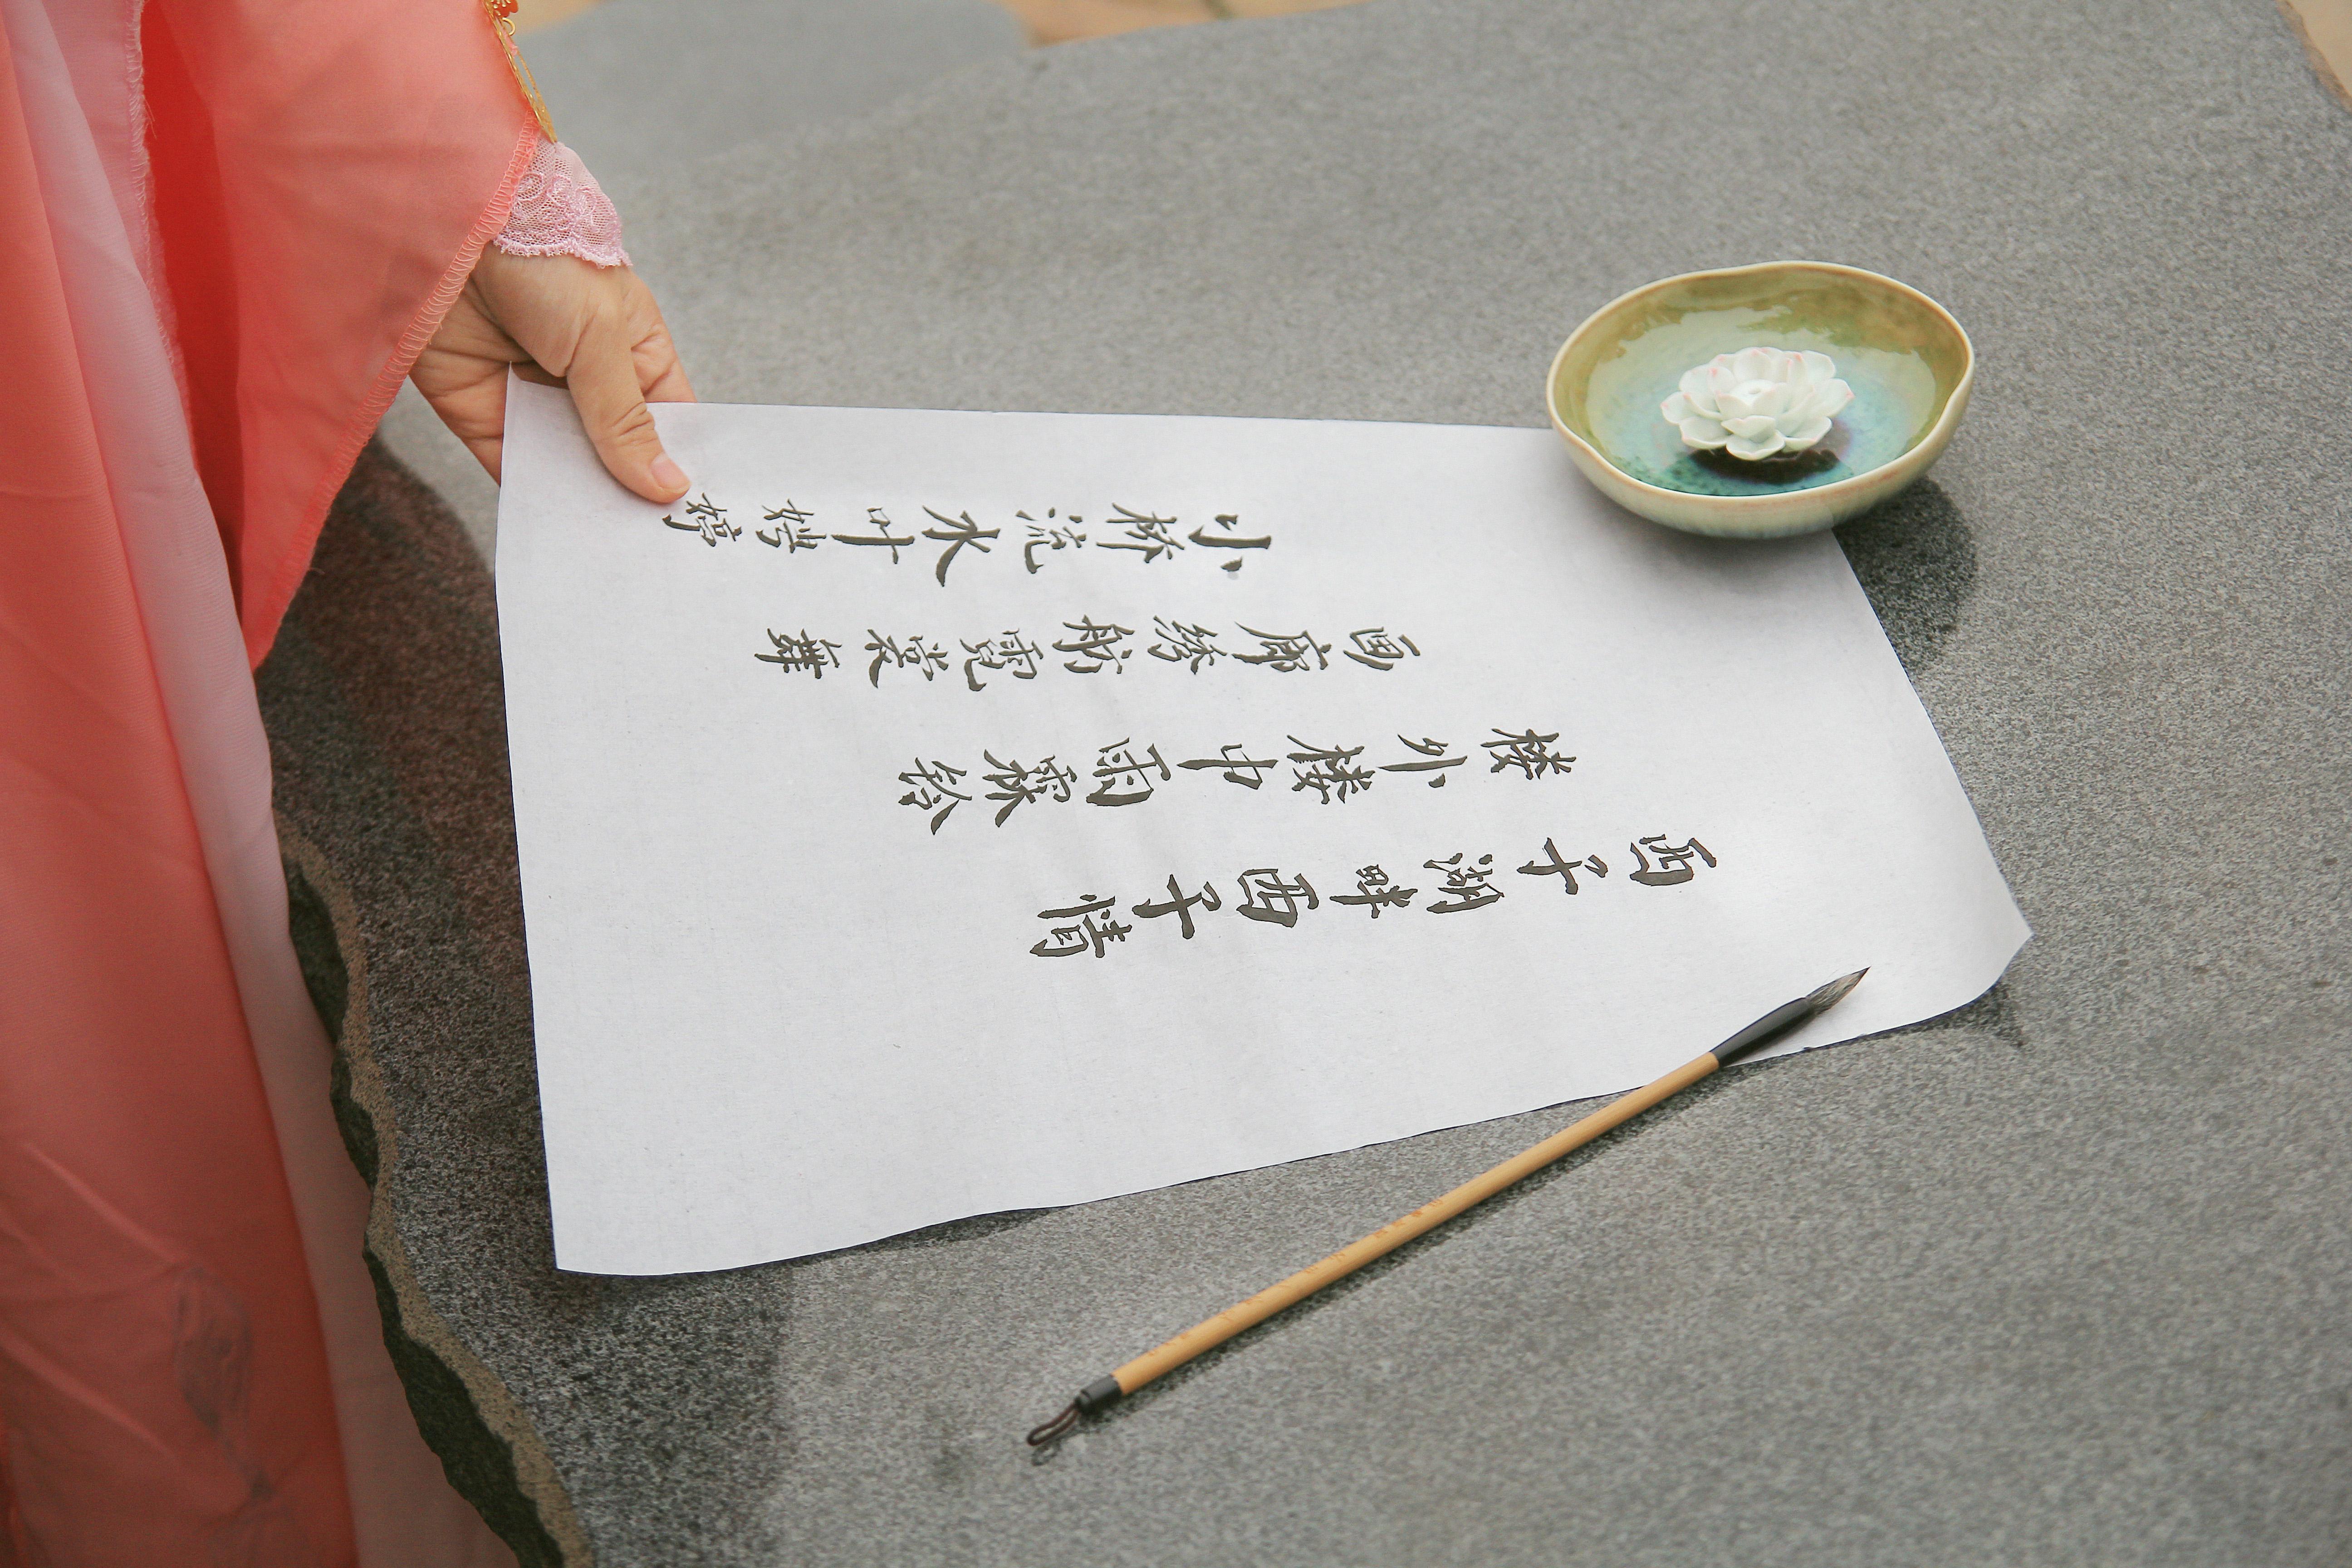 西子湖畔西子情
楼外楼中雨霖铃
画廊绣舫霓裳舞
小桥流水叶娉婷